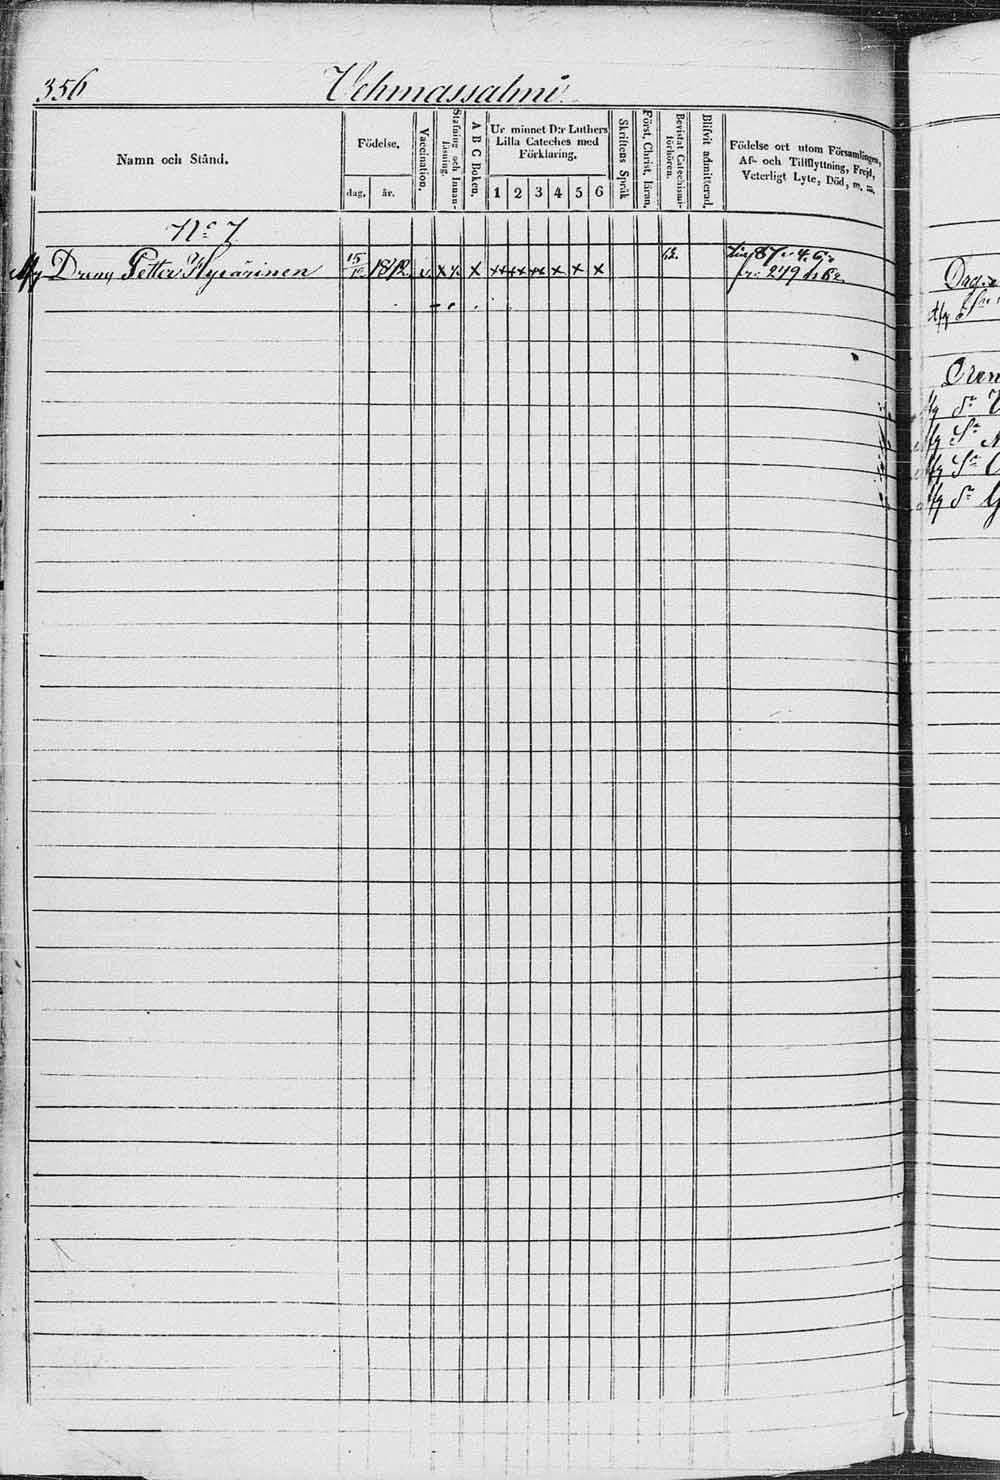 356 Vehmassalmi
Namn och Stånd.
Födelse.
dag. år.
Vaccination.
Stafning och Innan-läsning.
A B C Boken.
Ur minnet D:r Luthers
Lilla Cateches med
Förklaring.
1 2 3 4 5 6
Skriftens Språk
Först. Christ. läran.
Bevistat Catechismi-förhören.
Blifvit admitterad.
Födelse ort utom Församlingen,
Af- och Tillflyttning, Frejd,
Veterligt Lyte, Död, m. m.
No 7
Dreng Petter Hyvärinen 15/10 1812. v. x x x x x x x